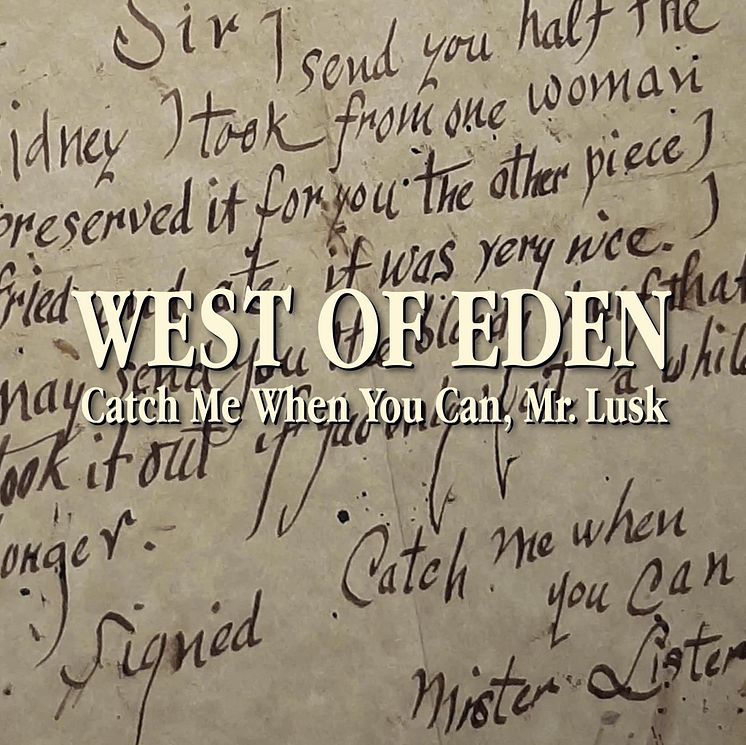 Sir I send you half the
idney I took from one woman
preserved it for you the other piece I
fried and ate it was very nice. I
WEST OF EDEN
may send you the bloody that
Catch Me When You Can, Mr. Lusk
took it out if a while
onger.
Catch me when
you Can
Signed
Mister Lister